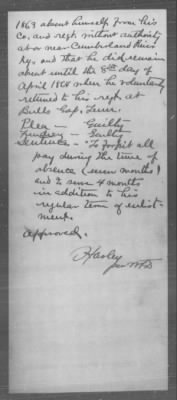 1863 absent himself from his
Co. and regt. without authority
at or near Cumberland River
Ky., and that he did remain
absent until the 8th day of
April 1864 when he voluntarily
returned to his regt. at
Bulls Gap, Tenn.
Plea — Guilty
Finding — Guilty
Sentence — "To forfeit all
pay during the time of
absence (seven months)
and to serve 4 months
in addition to his
regular term of enlist-
ment.
Approved.